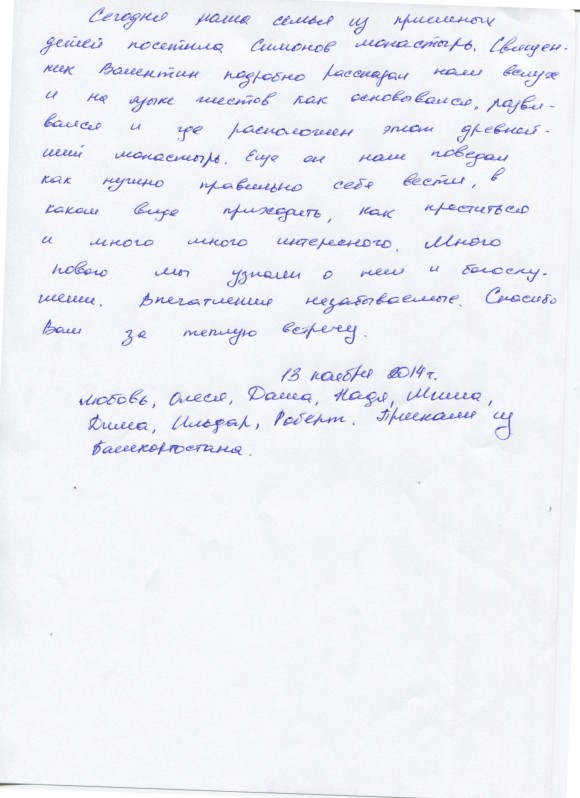 Сегодня наша семья из приемных
детей посетила Симонов монастырь. Священ-
ник Валентин подробно рассказал нам вслух
и на языке жестов как основывался, разви-
вался и где расположен этот древней-
ший монастырь. Еще он нам поведал
как нужно правильно себя вести, в
каком виде приходить, как креститься
и много много интересного. Много
нового мы узнали о нем и богослу-
жении. Впечатления незабываемые. Спасибо
Вам за теплую встречу.
13 ноября 2014г.
Любовь, Олеся, Даша, Надя, Миша,
Дима, Ильдар, Роберт. Приехали из
Башкортостана.